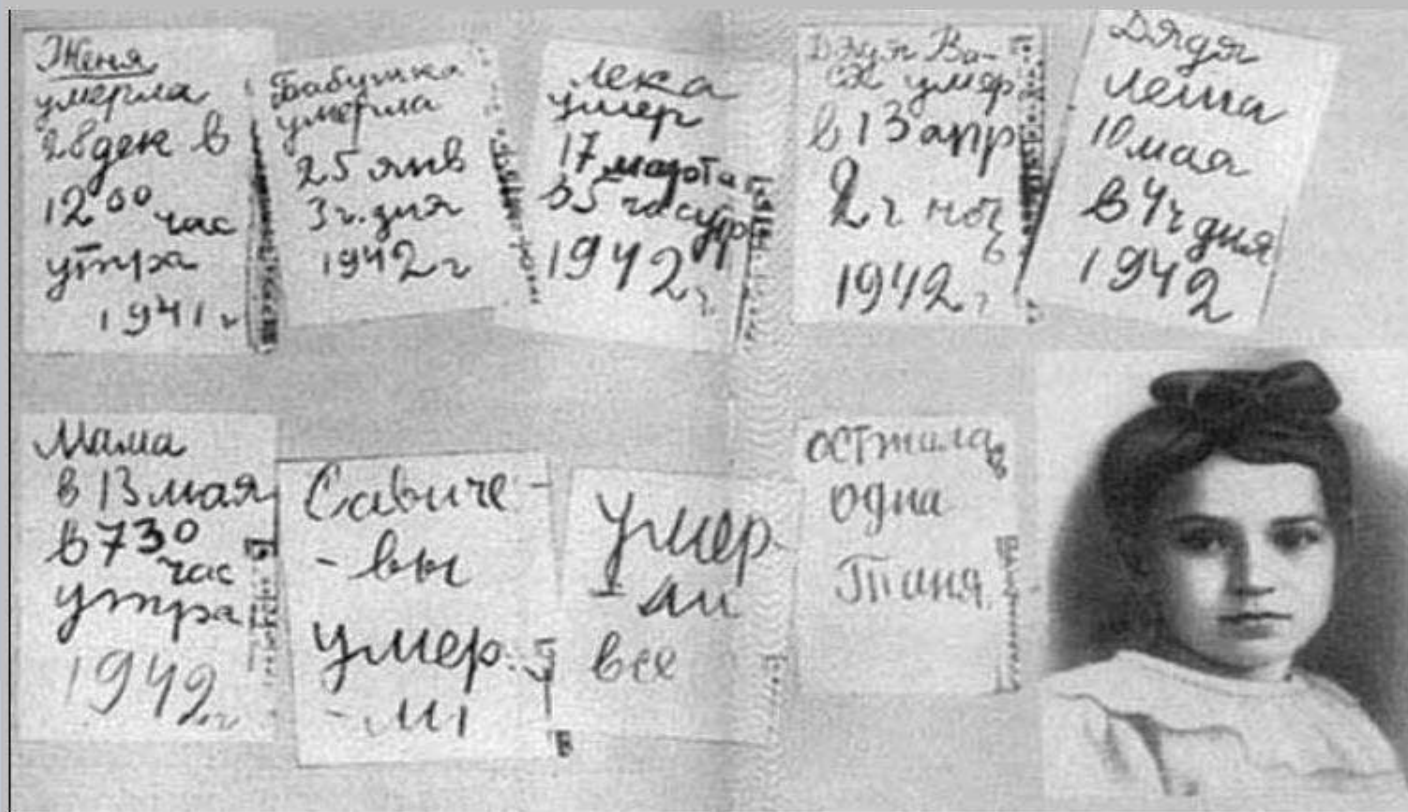 Женя
умерла
28 дек в
12⁰⁰ час
утра
1941 г
Бабушка
умерла
25 янв
3 ч. дня
1942 г
Лека
умер
17 марта
в 5 час утр
1942 г.
Дядя Ва-
ся умер
в 13 апр
2 ч ноч
1942 г
Дядя
Леша
10 мая
в 4 ч дня
1942
Мама
в 13 мая
в 7 30
час
утра
1942 г.
Савиче-
-вы
умер.
-ли
Умер-
-ли
все
осталась
одна
Таня.